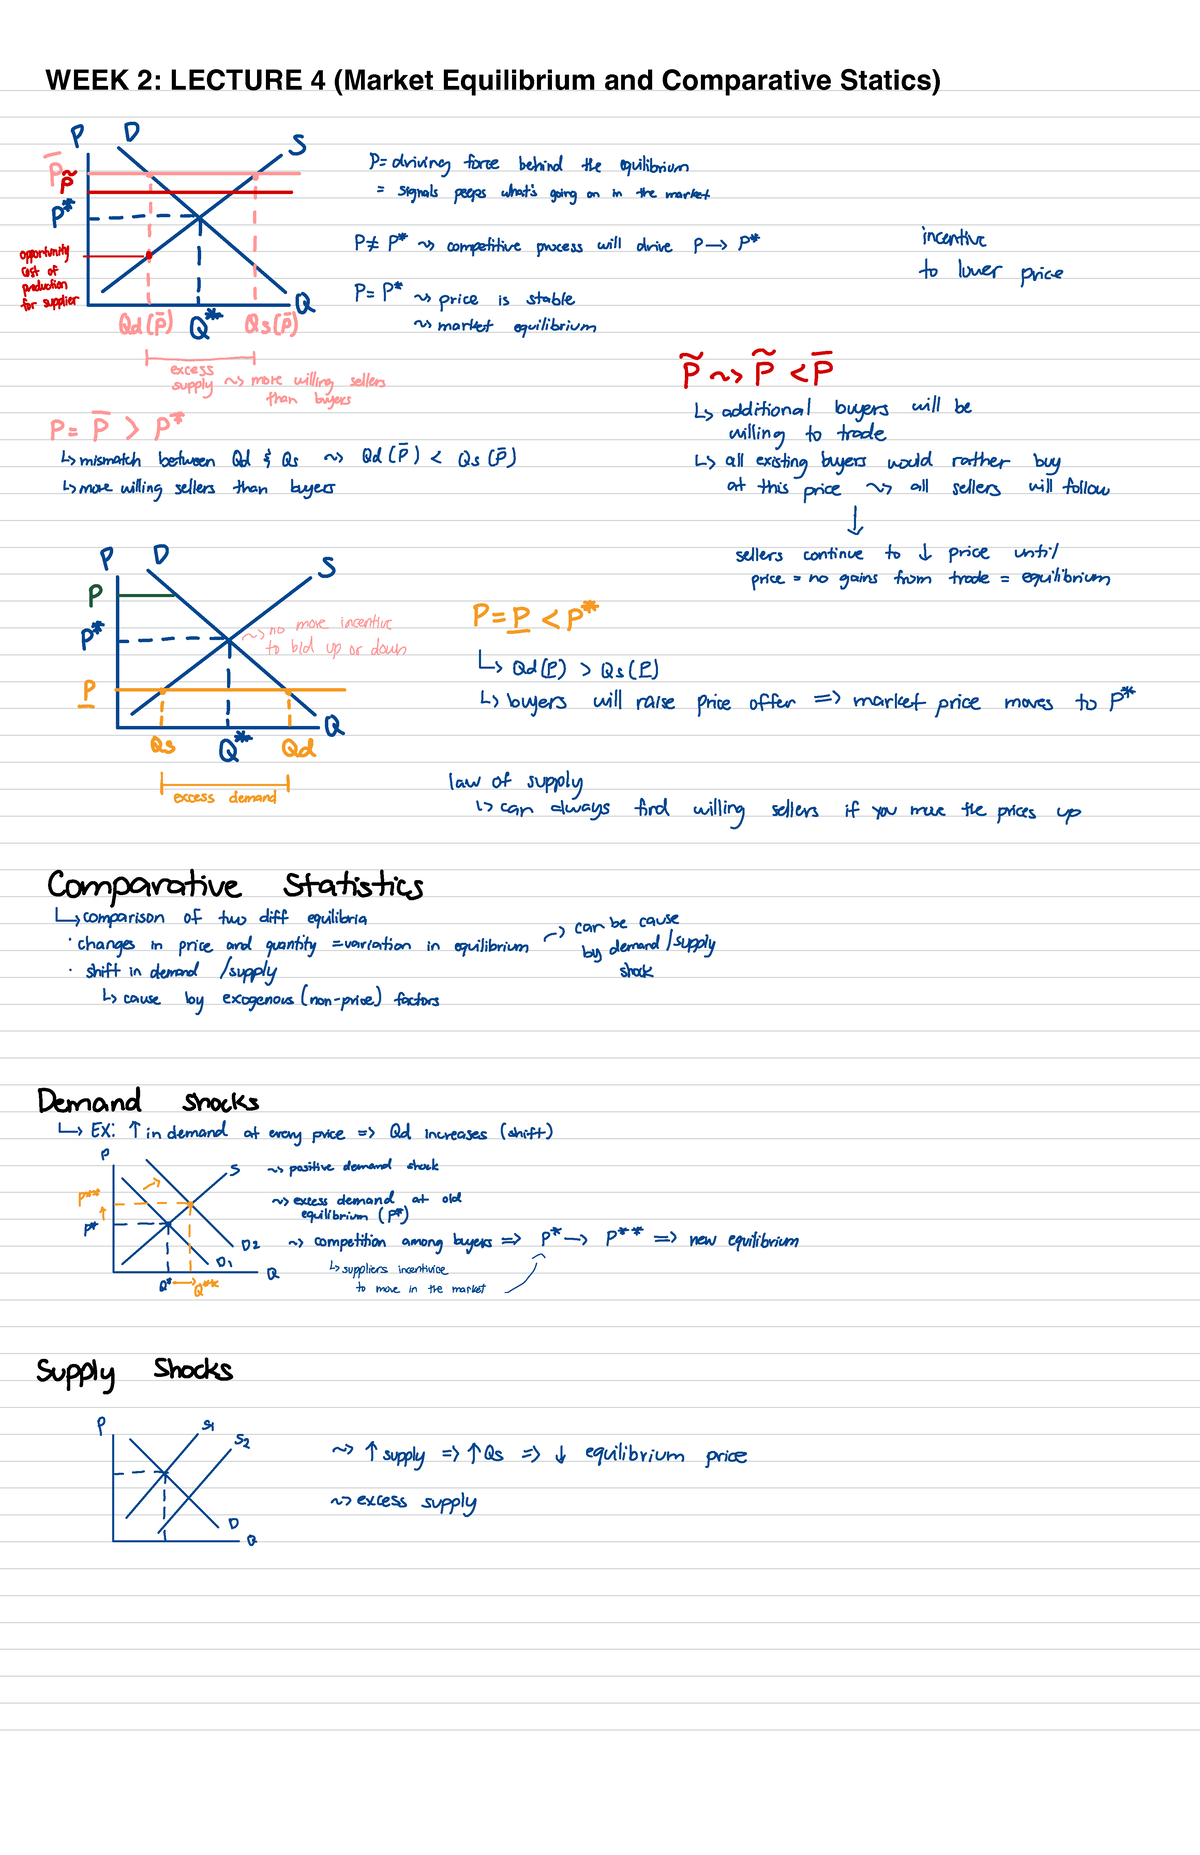 WEEK 2: LECTURE 4 (Market Equilibrium and Comparative Statics)
P D S
P̅
P̃
P*
opportunity
cost of
production
for supplier
Q
Qd(P̅) Q* Qs(P̅)
excess
supply ~> more willing sellers
than buyers
P = driving force behind the equilibrium
= signals peeps what's going on in the market
P ≠ P* ~> competitive process will drive P → P*
P = P* ~> price is stable
~> market equilibrium
incentive
to lower price
P = P̅ > P*
↳ mismatch between Qd & Qs ~> Qd(P̅) < Qs(P̅)
↳ more willing sellers than buyers
P̃ ~> P̃ < P̅
↳ additional buyers will be
willing to trade
↳ all existing buyers would rather buy
at this price ~> all sellers will follow
↓
sellers continue to ↓ price until
price = no gains from trade = equilibrium
P D S
P
P*
~> no more incentive
to bid up or down
P̲
Q
Qs Q* Qd
excess demand
P = P̲ < P*
↳ Qd(P̲) > Qs(P̲)
↳ buyers will raise price offer => market price moves to P*
law of supply
↳ can always find willing sellers if you move the prices up
Comparative Statistics
↳ comparison of two diff equilibria
· changes in price and quantity = variation in equilibrium → can be cause
by demand/supply
shock
· shift in demand /supply
↳ cause by exogenous (non-price) factors
Demand shocks
↳ EX: ↑ in demand at every price => Qd increases (shift)
P S
P**
P*
D2
D1
Q
Q* → Q**
~> positive demand shock
~> excess demand at old
equilibrium (P*)
~> competition among buyers => P* → P** => new equilibrium
↳ suppliers incentivize
to move in the market
Supply Shocks
P S1
S2
D
Q
~> ↑ supply => ↑ Qs => ↓ equilibrium price
~> excess supply